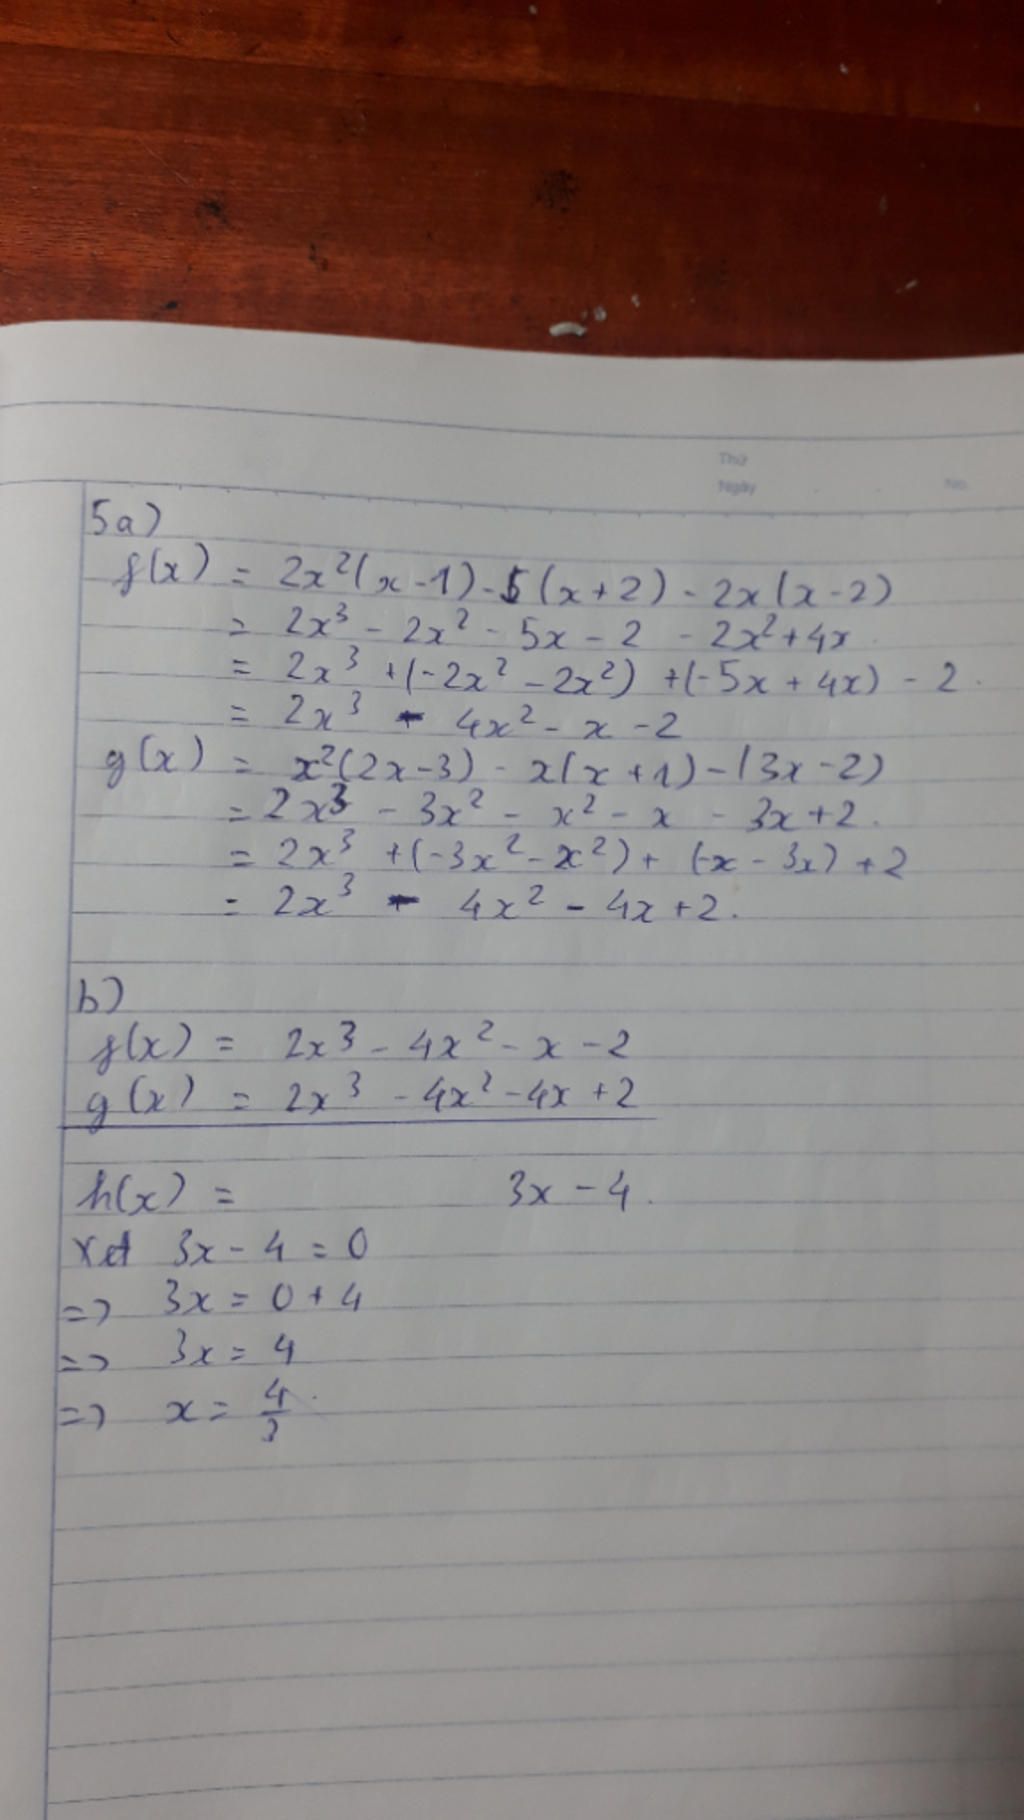 Thứ
Ngày No.
5a)
f(x) = 2x²(x-1)-5(x+2)-2x(x-2)
= 2x³ - 2x² - 5x - 2 - 2x²+4x
= 2x³ +(-2x² - 2x²) +(-5x + 4x) - 2.
= 2x³ - 4x² - x - 2
g(x) = x²(2x-3) - x(x+1)-(3x-2)
= 2x³ - 3x² - x² - x - 3x+2.
= 2x³ +(-3x²-x²)+ (-x - 3x) +2
= 2x³ - 4x² - 4x+2.
b)
f(x) = 2x³ - 4x² - x - 2
g(x) = 2x³ - 4x² - 4x +2
h(x) = 3x - 4.
Xet 3x - 4 = 0
=> 3x = 0 + 4
=> 3x = 4
=> x = 4/3